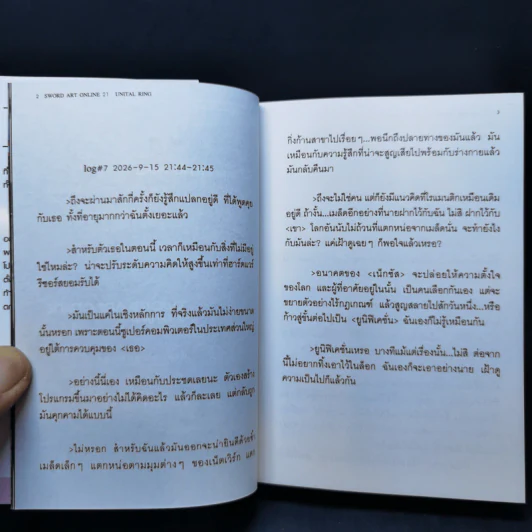 2 SWORD ART ONLINE 27 UNITAL RING
log#7 2026-9-15 21:44-21:45
>ถึงจะผ่านมาสักกี่ครั้งก็ยังรู้สึกแปลกอยู่ดี ที่ได้พูดคุย
กับเธอ ทั้งที่อายุมากกว่าฉันตั้งเยอะแล้ว
>สำหรับตัวเธอในตอนนี้ เวลาก็เหมือนกับสิ่งที่ไม่มีอยู่
ใช่ไหมล่ะ? น่าจะปรับระดับความคิดให้สูงขึ้นเท่าที่ฮาร์ดแวร์
รีซอร์สยอมรับได้
>มันเป็นแค่ในเชิงหลักการ ที่จริงแล้วมันไม่ง่ายขนาด
นั้นหรอก เพราะตอนนี้ซูเปอร์คอมพิวเตอร์ในประเทศส่วนใหญ่
อยู่ใต้การควบคุมของ <เธอ>
>อย่างนี้นี่เอง เหมือนกับประชดเลยนะ ตัวเองสร้าง
โปรแกรมขึ้นมาอย่างไม่ได้คิดอะไร แล้วก็ละเลย แต่กลับถูก
มันคุกคามได้แบบนี้
>ไม่หรอก สำหรับฉันแล้วมันออกจะน่ายินดีด้วยซ้ำ
เมล็ดเล็กๆ แตกหน่อตามมุมต่างๆ ของเน็ตเวิร์ก แตก
3
กิ่งก้านสาขาไปเรื่อยๆ...พอนึกถึงปลายทางของมันแล้ว มัน
เหมือนกับความรู้สึกที่น่าจะสูญเสียไปพร้อมกับร่างกายแล้ว
มันกลับคืนมา
>ถึงจะไม่ใช่คน แต่ก็ยังมีแนวคิดที่โรแมนติกเหมือนเดิม
อยู่ดี ถ้างั้น...เมล็ดอีกอย่างที่นายฝากไว้กับฉัน ไม่สิ ฝากไว้กับ
<เขา> โลกอันนับไม่ถ้วนที่แตกหน่อจากเมล็ดนั่น จะทำยังไง
กับมันล่ะ? แค่เฝ้าดูเฉยๆ ก็พอใจแล้วเหรอ?
>อนาคตของ <เน็กซัส> จะปล่อยให้ความตั้งใจ
ของโลก และผู้ที่อาศัยอยู่ในนั้น เป็นคนเลือกกันเอง แต่จะ
ขยายตัวอย่างไร้กฎเกณฑ์ แล้วสูญสลายไปสักวันหนึ่ง...หรือ
ก้าวสู่ขั้นต่อไปเป็น <ยูนิฟิเคชั่น> ฉันเองก็ไม่รู้เหมือนกัน
>ยูนิฟิเคชั่นเหรอ บางทีแม้แต่เรื่องนั้น...ไม่สิ ต่อจาก
นี้ไม่อยากทิ้งเอาไว้ในล็อก ฉันเองก็จะเอาอย่างนาย เฝ้าดู
ความเป็นไปก็แล้วกัน